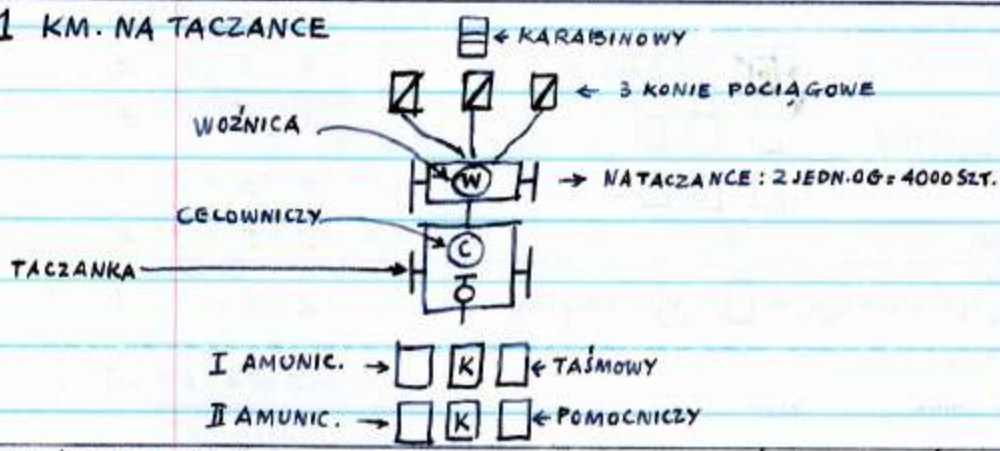 1 KM. NA TACZANCE
← KARABINOWY
← 3 KONIE POCIĄGOWE
WOŹNICA
W
→ NA TACZANCE: 2 JEDN. OG = 4000 SZT.
CELOWNICZY
C
TACZANKA
I AMUNIC. → K ← TAŚMOWY
II AMUNIC. → K ← POMOCNICZY